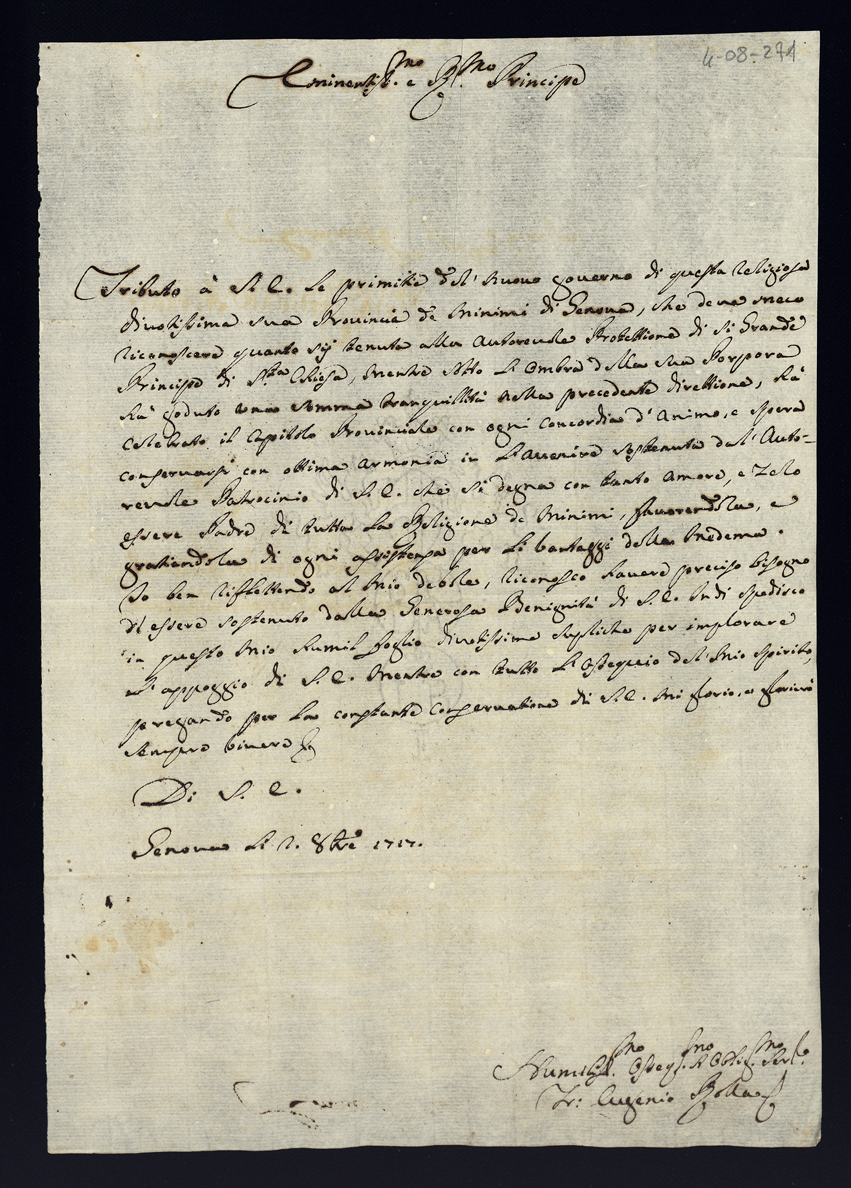 4-08-271
Eminentiss.mo e R.mo Principe
Tributo à V. E. le primitie del nuovo governo di questa religiosa
divotissima sua Provincia de Minimi di Genova, che deve meco
riconoscere quanto sij tenuta alla autorevole Protettione di sì Grande
Principe di S.ta Chiesa, mentre sotto l'ombra della sua Porpora
hà goduto una somma tranquillità nella precedente direttione, hà
celebrato il Capitolo Provinciale con ogni concordia d'Animo, e spera
conservarsi con ottima armonia in l'avenire sostenuta dal'Auto-
revole Patrocinio di V. E. che si degna con tanto amore, e zelo
essere Padre di tutta la Religione de Minimi, favorendola, e
gratiandola di ogni assistenza per li vantaggi della medema.
Io ben riflettendo al mio debole, riconosco havere preciso bisogno
di essere sostenuto dalla Generosa Benignità di V. E. Indi spedisco
in questo mio humil foglio divotissime supliche per implorare
l'appoggio di V. E. mentre con tutto l'ossequio del mio spirito,
pregando per la constante conservatione di V. E. mi glorio, e gloriarò
sempre vivere
Di V. E.
Genova li 2. 8bre 1717.
Humiliss.mo Osseq.mo et Oblig.mo Ser.e
Fr: Eugenio Bolla